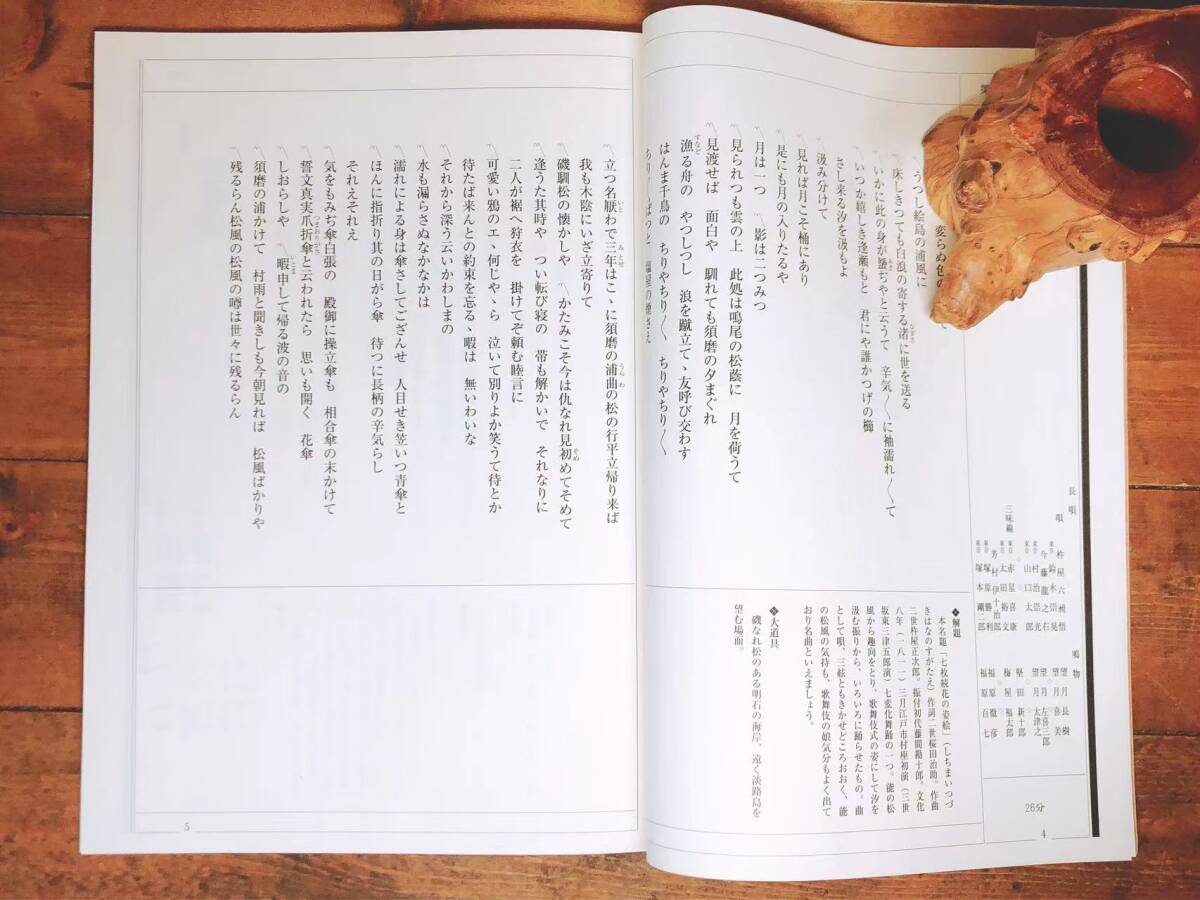 変らぬ色の
うつし絵島の浦風に
床しきつても白浪の寄する渚に世を送る
いかに此の身が蜑ぢやと云うて 辛気〳〵に袖濡れ〳〵て
いつか嬉しき逢瀬もと 君にや誰かつげの櫛
さし来る汐を汲もよ
汲み分けて
見れば月こそ桶にあり
是にも月の入りたるや
月は一つ 影は二つみつ
見られつも雲の上 此処は鳴尾の松蔭に 月を荷うて
見渡せば 面白や 馴れても須磨の夕まぐれ
漁る舟の やつしつし 浪を蹴立てゝ友呼び交わす
はんま千鳥の ちりやちり〳〵 ちりやちり〳〵
ちり〳〵ぱつと 塩屋の煙さえ
立つ名厭わで三年はこゝに須磨の浦曲の松の行平立帰り来ば
我も木陰にいざ立寄りて
磯馴松の懐かしや かたみこそ今は仇なれ見初めてそめて
逢うた其時や つい転び寝の 帯も解かいで それなりに
二人が裾へ狩衣を 掛けてぞ頼む睦言に
可愛い鴉のエゝ何じやゝら 泣いて別りよか笑うて待とか
待たば来んとの約束を忘るゝ暇は 無いわいな
それから深う云いかわしまの
水も漏らさぬなかなかは
濡れによる身は傘さしてござんせ 人目せき笠いつ青傘と
ほんに指折り其の日がら傘 待つに長柄の辛気らし
それえそれえ
気をもみぢ傘白張の 殿御に操立傘も 相合傘の末かけて
誓文真実爪折傘と云われたら 思いも開く 花傘
しおらしや 暇申して帰る波の音の
須磨の浦かけて 村雨と聞きしも今朝見れば 松風ばかりや
残るらん松風の松風の噂は世々に残るらん
長唄
唄
杵屋六昶悟
鈴木崇晃
今藤龍之右
村治崇光
山口太郎
三味線
赤星喜康
太田裕文
芳村伊十治郎
塚原勝利
塚本剛二郎
鳴物
望月長樹
望月喜美
望月左喜三郎
望月太津之
堅田新十郎
梅屋福太郎
福原徹彦
福原百七
26分
4
❖解題
本名題「七枚続花の姿絵」(しちまいつづ
きはなのすがたえ)作詞二世桜田治助。作曲
二世杵屋正次郎。振付初代藤間勘十郎。文化
八年(一八一一)三月江戸市村座初演(三世
坂東三津五郎演)七変化舞踊の一つ。能の松
風から趣向をとり、歌舞伎式の姿にして汐を
汲む振りから、いろいろに踊らせたもの。曲
として唄、三絃ともきかせどころおおく、能
の松風の気持も、歌舞伎の娘気分もよく出て
おり名曲といえましょう。
❖大道具
磯なれ松のある明石の海岸。遠く淡路島を
望む場面。
5